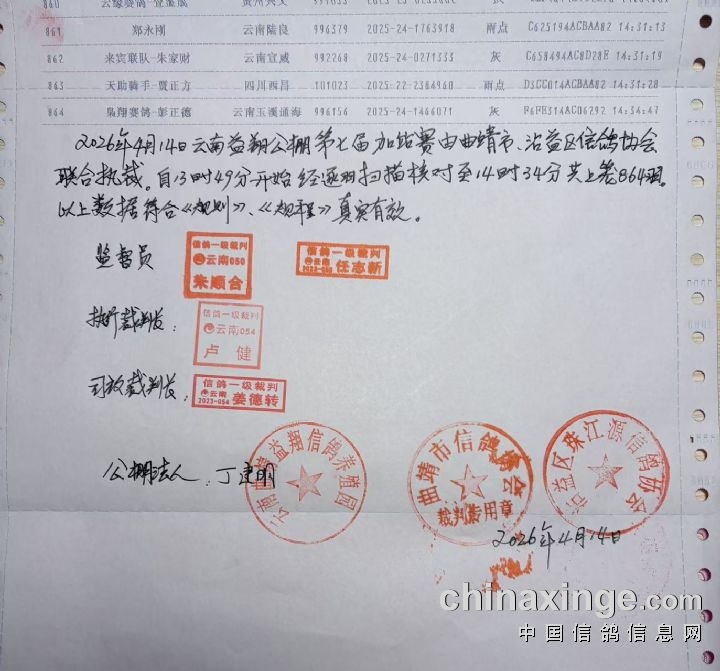 861 郑永刚 云南陆良 996379 2025-24-1763918 雨点 C625194ACBAA82 14:31:13
862 来宾联队-朱家财 云南宣威 992268 2025-24-0271303 灰 C658494AC8D28E 14:31:19
863 天助骑手-贾正方 四川西昌 101023 2025-22-2384960 雨点 D3CC014ACBAA82 14:31:28
864 枭翔赛鸽-彭正德 云南玉溪通海 996156 2025-24-1466071 灰 F6FE314AC06292 14:34:47
2026年4月14日云南益翔公棚第七届加站赛由曲靖市、沾益区信鸽协会
联合执裁。自13时49分开始经逐羽扫描核对至14时34分共上笼864羽。
以上数据符合《规则》、《规程》真实有效。
监督员
信鸽一级裁判
云南050
朱顺合
信鸽一级裁判
云南
任志新
执行裁判长:
信鸽一级裁判
云南054
卢健
司放裁判长:
信鸽一级裁判
云南
2023-054
姜德转
公棚法人:丁建明
益翔信鸽养殖园
曲靖市信鸽协会
裁判专用章
沾益区珠江源信鸽协会
2026年4月14日
chinaxinge.com
中国信鸽信息网